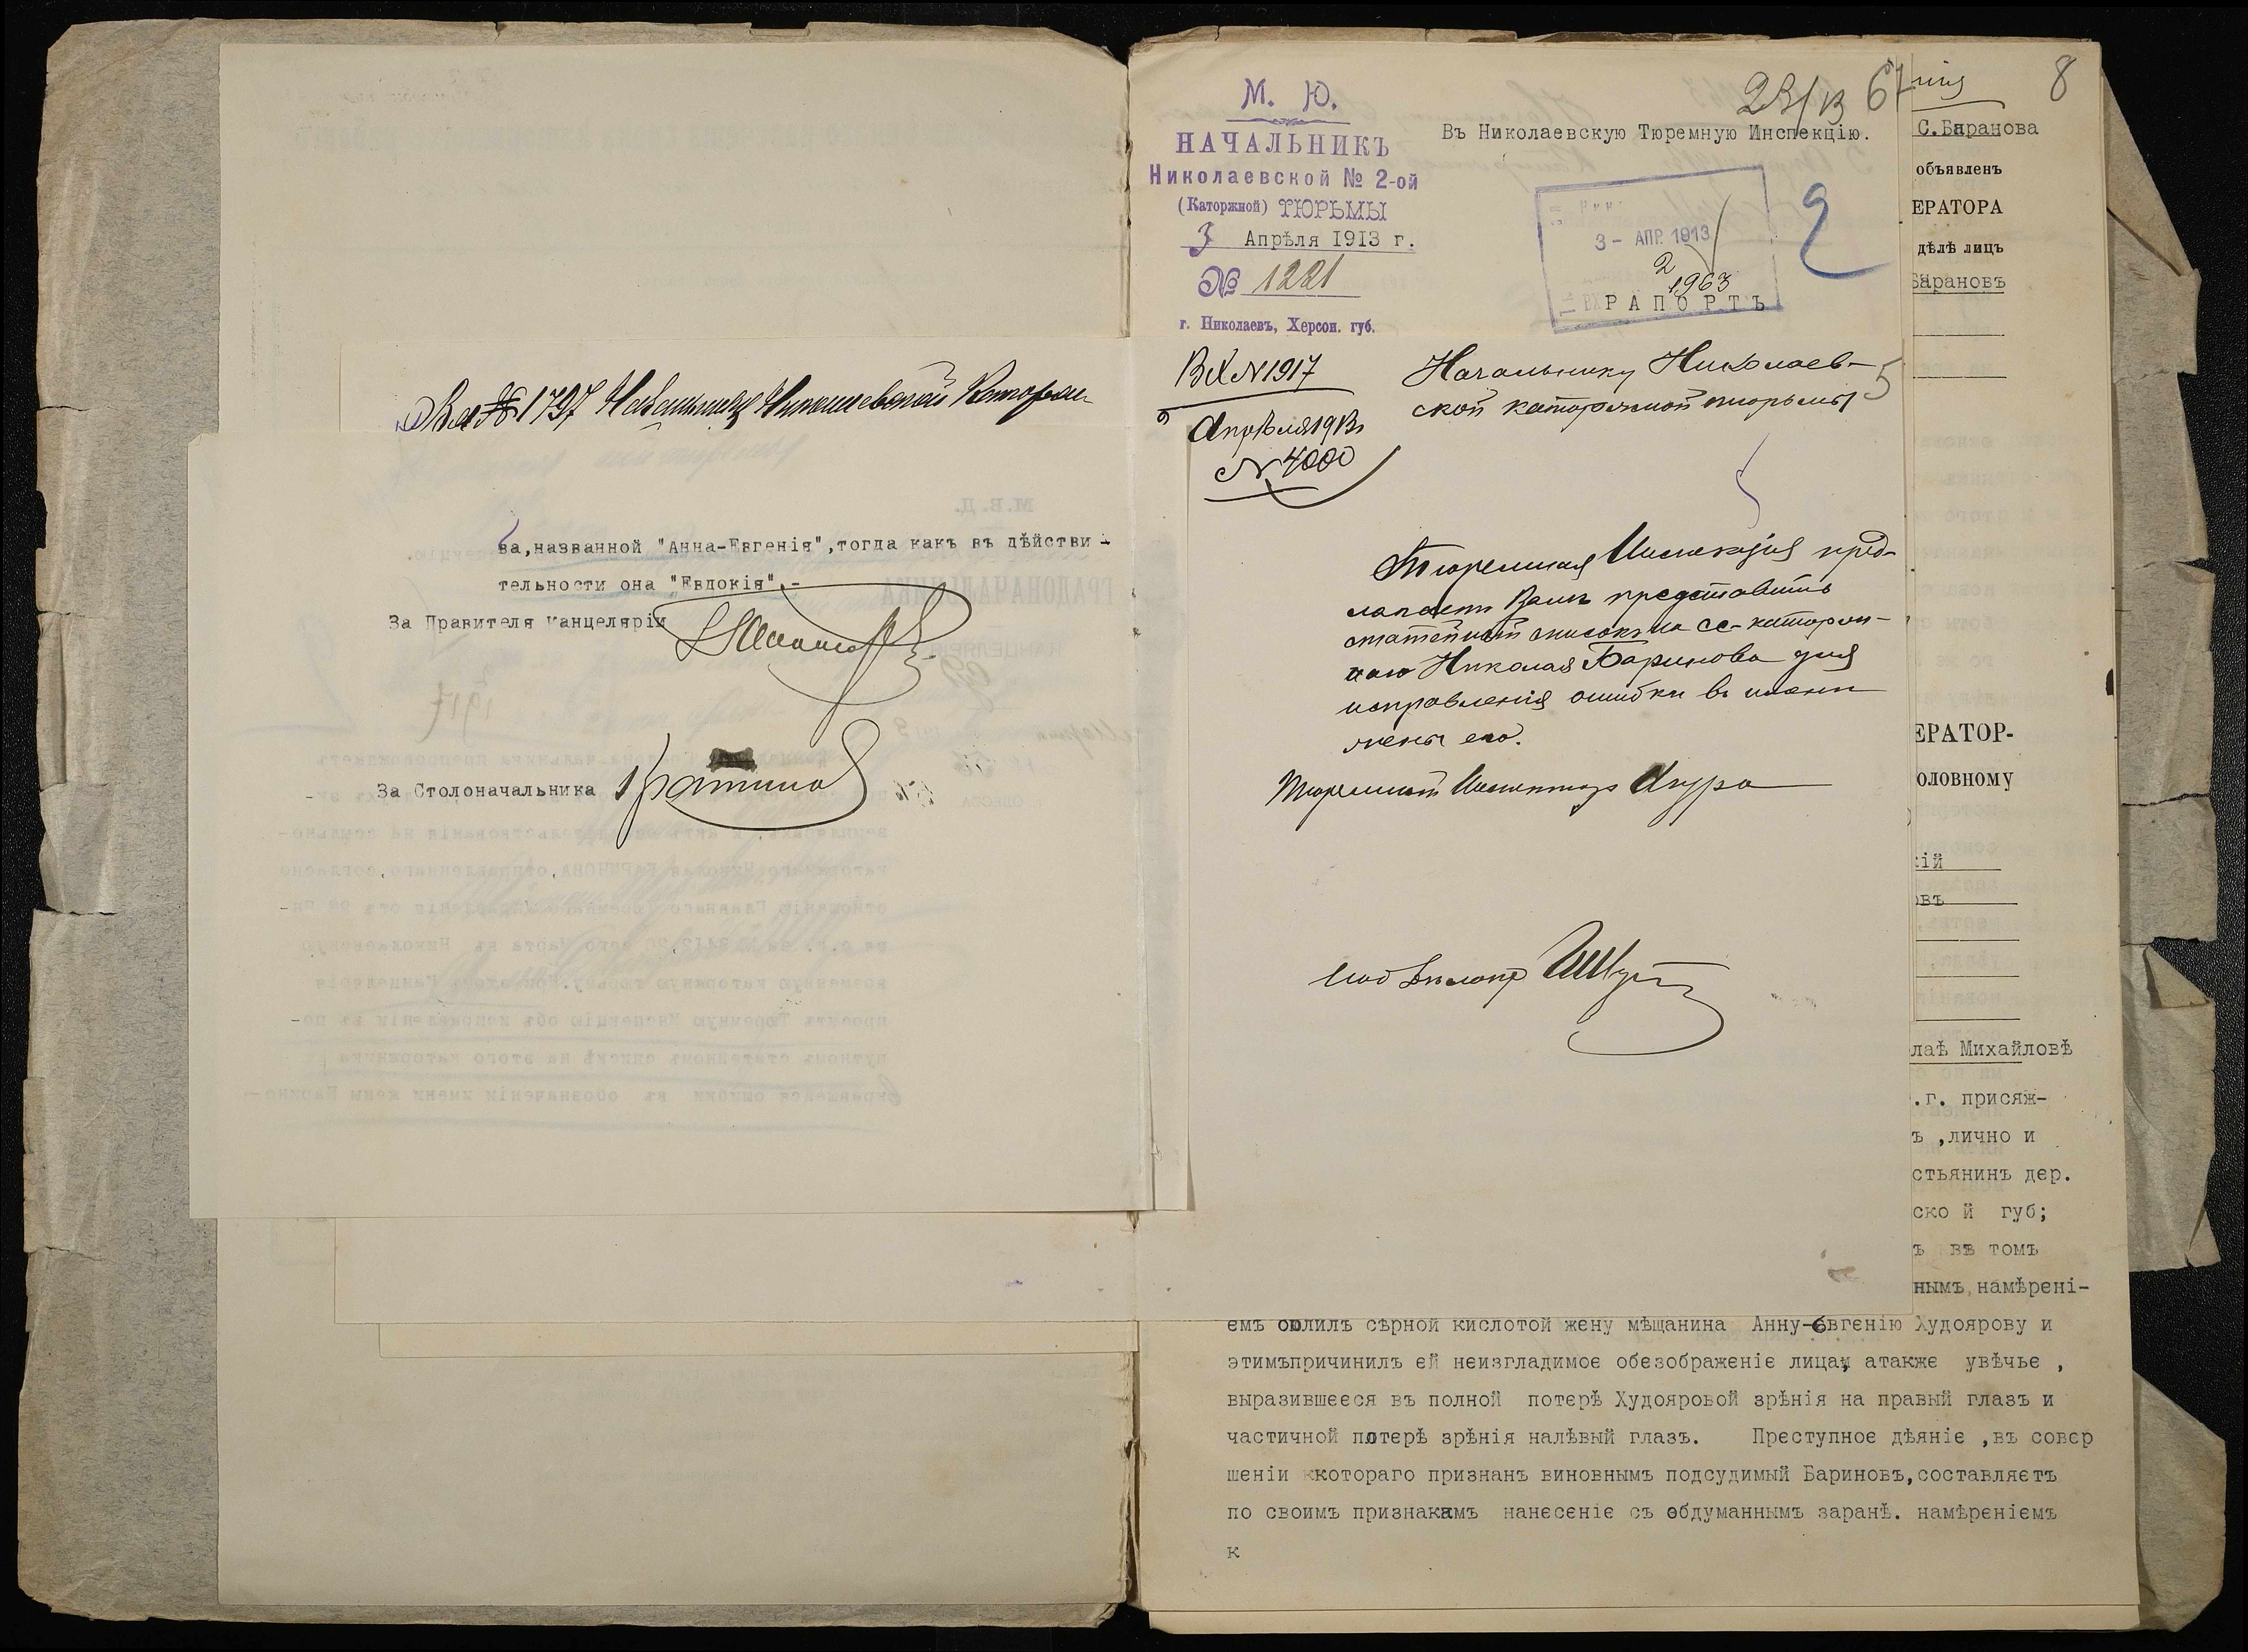 Вх № 1797 Начальнику Николаевской Каторжн
ва,названной "Анна-Евгенія",тогда какъ въ дѣйстви-
тельности она "Евдокія".-
За Правителя канцеляріи
За Столоначальника
М. Ю.
НАЧАЛЬНИКЪ
Николаевской № 2-ой
(Каторжной) ТЮРЬМЫ
3 Апрѣля 1913 г.
№ 1221
г. Николаевъ, Херсон. губ.
Въ Николаевскую Тюремную Инспекцію.
3- АПР. 1913
2
1963
РАПОРТЪ
2
5
8
Вх N 1917
9
Апрѣля 1913
N 4000
Начальнику Николаев-
ской каторжной тюрьмы
Тюремная Инспекція пред-
лагаетъ Вамъ представить
статейный списокъ на сс-каторж-
наго Николая Баринова для
исправленія ошибки въ имени
жены его.
Тюремный Инспекторъ
С.Баранова
объявленъ
ЕРАТОРА
дѣлѣ лицъ
Барановъ
ЕРАТОР-
оловному
кій
овъ
лаѣ Михайловѣ
.г. присяж-
ъ ,лично и
стьянинъ дер.
ско й губ;
ъ въ томъ
нымъ намѣрені-
емъ облилъ сѣрной кислотой жену мѣщанина Анну-Евгенію Худоярову и
этимъпричинилъ ей неизгладимое обезображеніе лица, атакже увѣчье ,
выразившееся въ полной потерѣ Худояровой зрѣнія на правый глазъ и
частичной потерѣ зрѣнія налѣвый глазъ. Преступное дѣяніе ,въ совер
шеніи ккотораго признанъ виновнымъ подсудимый Бариновъ,составляетъ
по своимъ признакамъ нанесеніе съ обдуманнымъ заранѣ. намѣреніемъ
к